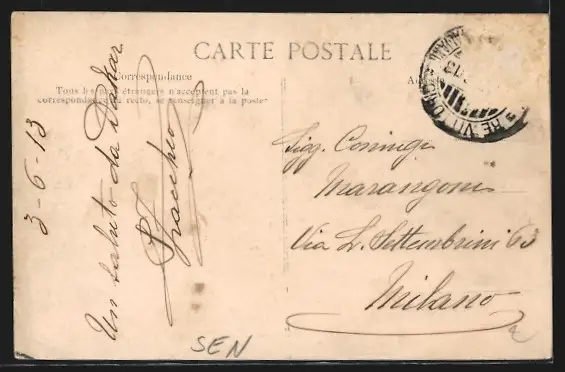 CARTE POSTALE
Correspondance
Tous les pays étrangers n'acceptent pas la
correspondance au recto, se renseigner à la poste
3-6-13
Un saluto da Dakar
Sigg. Coniugi
Marangoni
Via L. Settembrini 63
Milano
SEN